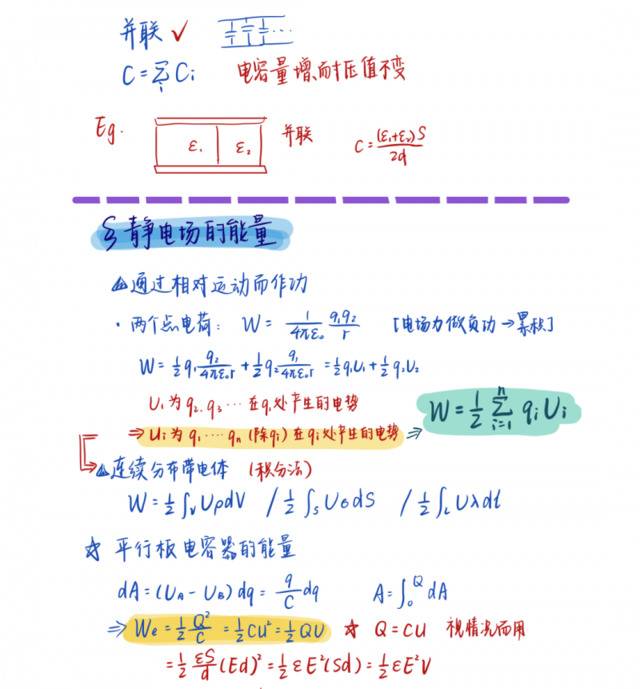 并联 ✓
C = ∑i Ci 电容量增,而耐压值不变
Eg. ε₁ ε₂ 并联 C = (ε₁+ε₂)S / 2d
§ 静电场的能量
△通过相对运动而作功
· 两个点电荷: W = 1/4πε₀ q₁q₂/r [电场力做负功 → 累积]
W = ½q₁ q₂/4πε₀r + ½q₂ q₁/4πε₀r = ½q₁U₁ + ½q₂U₂
U₁ 为 q₂、q₃ … 在 q₁ 处产生的电势
⇒ Ui 为 q₁ … qn (除 qi) 在 qi 处产生的电势 ⇒ W = ½ ∑ⁿi=1 qi Ui
△连续分布带电体 (积分法)
W = ½∫v UρdV / ½∫s UσdS / ½∫L Uλdl
☆ 平行板电容器的能量
dA = (UA − UB) dq = q/C dq A = ∫₀^Q dA
⇒ We = ½ Q²/C = ½CU² = ½QU ☆ Q = CU 视情况而用
= ½ εS/d (Ed)² = ½εE²(Sd) = ½εE²V